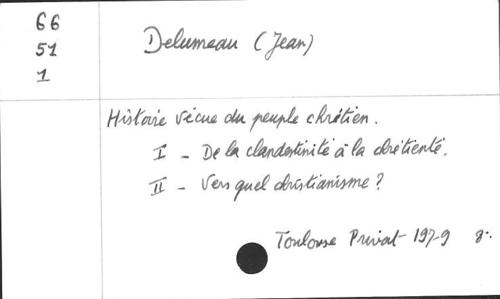 66
51
1
Delumeau (Jean)
Histoire vécue du peuple chrétien.
I - De la clandestinité à la chrétienté.
II - Vers quel christianisme ?
Toulouse Privat 1979 8°.